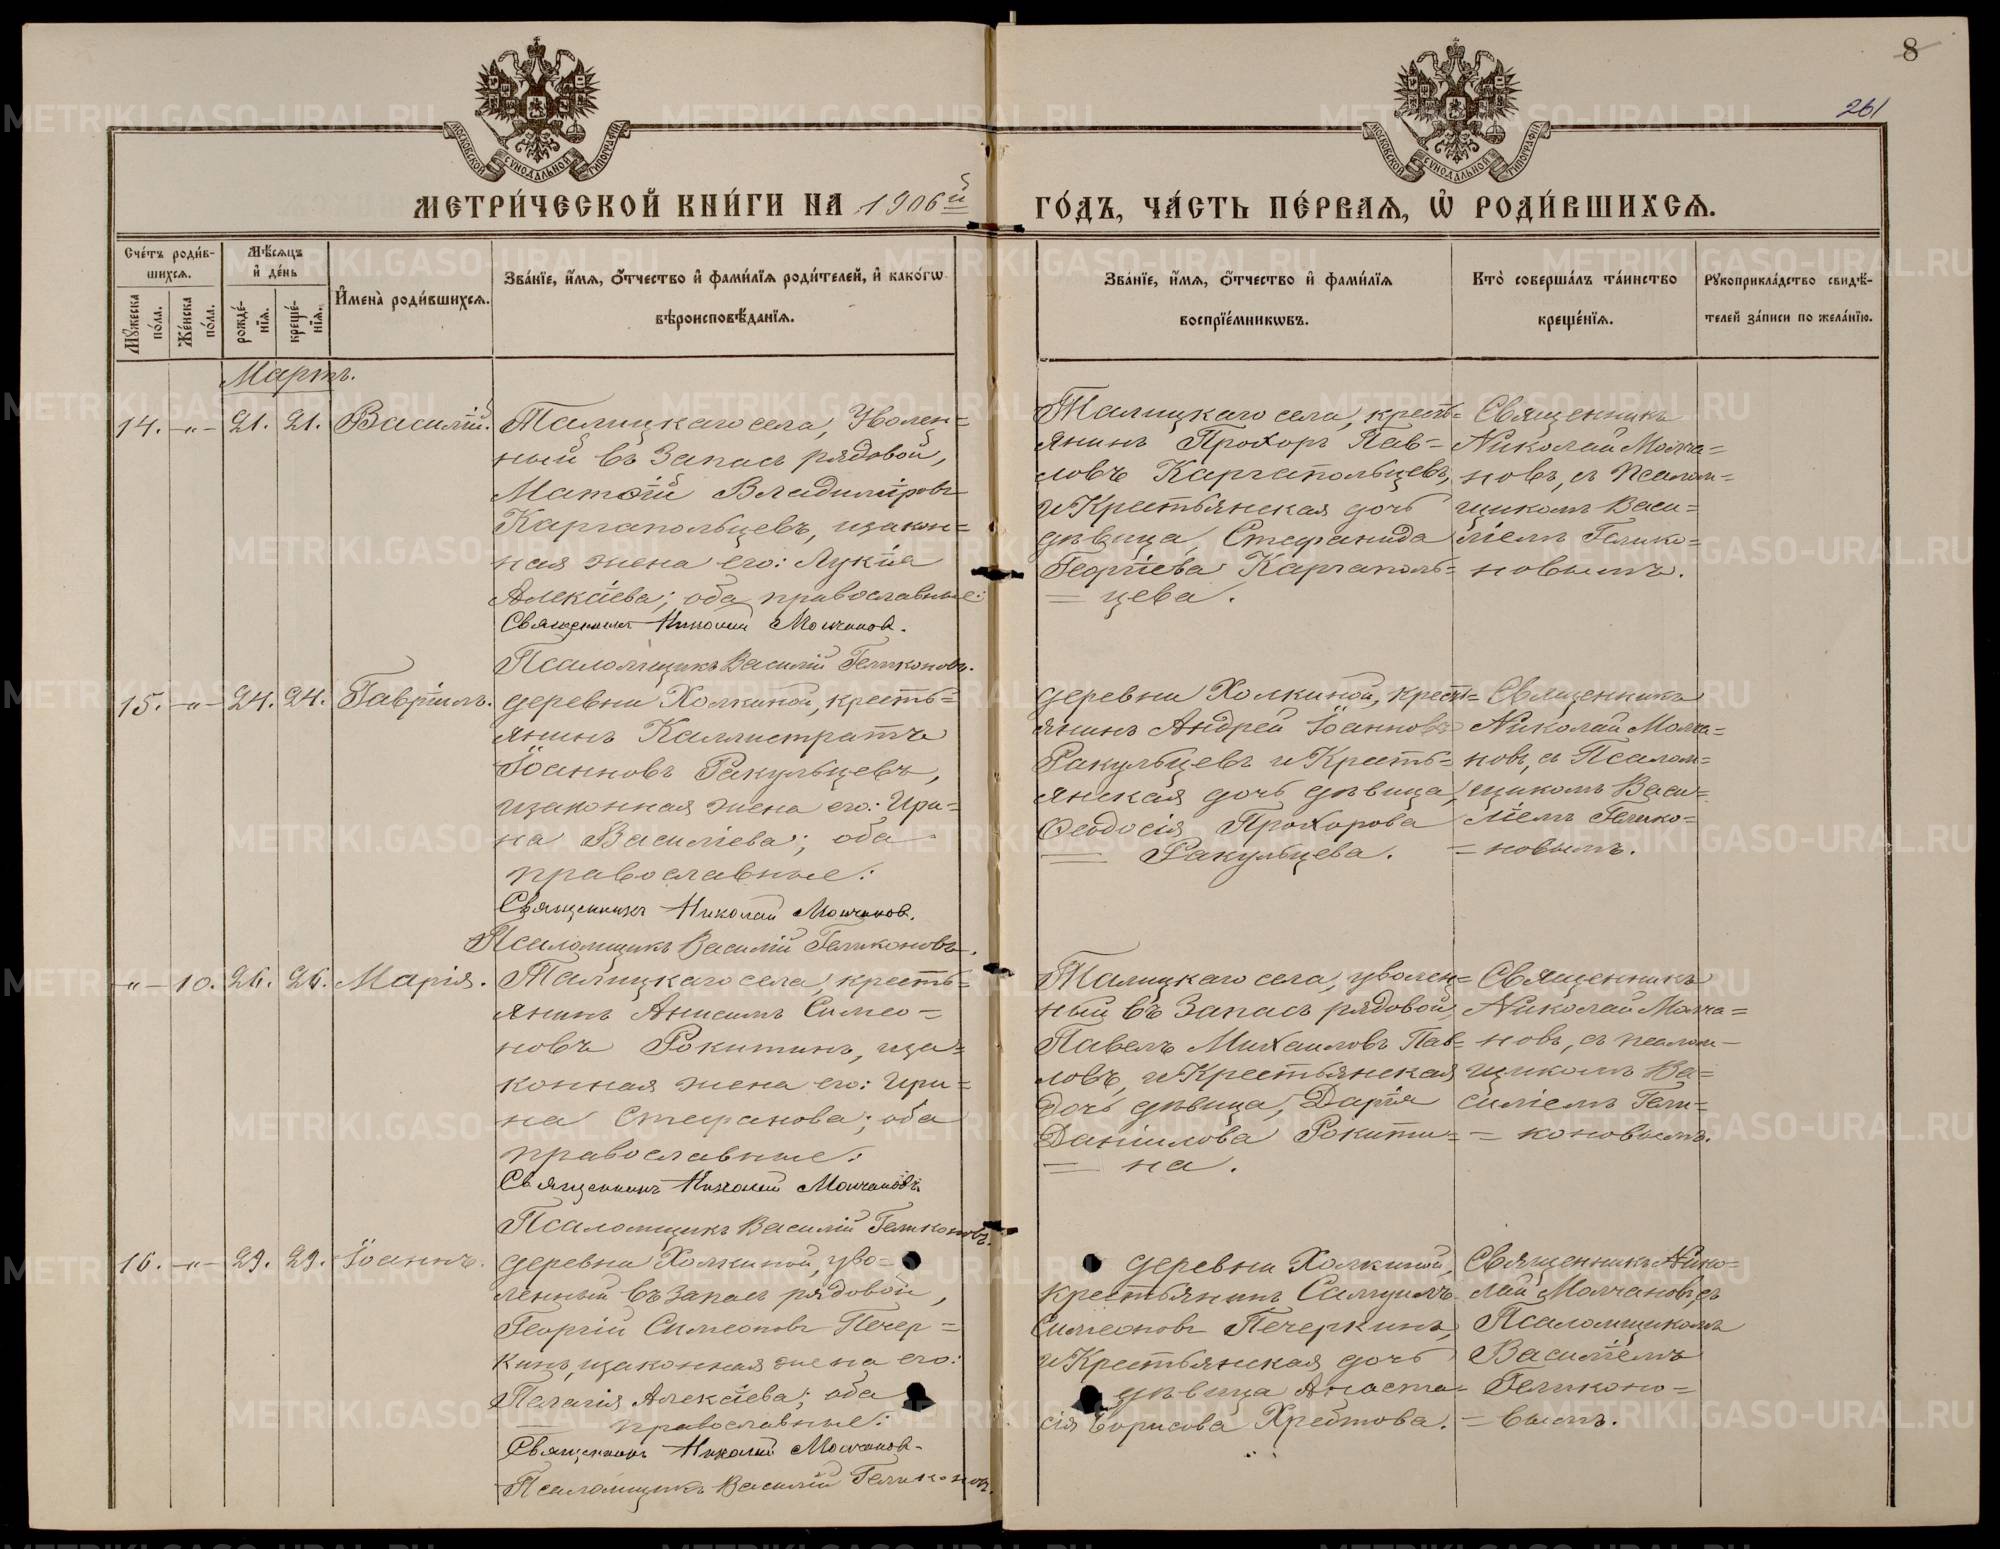 8
261
МОСКОВСКОЙ СѴНОДАЛЬНОЙ ТИПОГРАФІИ
МОСКОВСКОЙ СѴНОДАЛЬНОЙ ТИПОГРАФІИ
МЕТРИ́ЧЕСКОЙ КНИ́ГИ НА 1906й
ГО́ДЪ, ЧА́СТЬ ПЕ́РВАѦ, Ѽ РОДИ́ВШИХСѦ.
Сче́тъ роди́в-
шихсѧ.
Мꙋжеска по́ла.
Же́нска по́ла.
Мѣ́сѧцъ
и҆ де́нь
рожде́-
нїѧ.
креще́-
нїѧ.
И҆мена̀ роди́вшихсѧ.
Зва́нїе, и҆́мѧ, ѻ҆́тчество и҆ фами́лїѧ роди́телей, и҆ како́гѡ
вѣроисповѣ́данїѧ.
Зва́нїе, и҆́мѧ, ѻ҆́тчество и҆ фами́лїѧ
воспрїе́мникѡвъ.
Кто̀ соверша́лъ та́инство
креще́нїѧ.
Рꙋкоприкла́дство свидѣ́-
телей за́писи по жела́нїю.
Мартъ.
14. -„- 21. 21. Василій.
Талицкаго села, Уволен=
ный въ Запасъ рядовой,
Матѳій Владиміровъ
Каргапольцевъ, изакон=
ная жена его: Лукія
Алексіева; оба православные:
Священникъ Николай Молчановъ.
Псаломщикъ Василій Геликоновъ.
Талицкаго села, крест=
янинъ Прохоръ Пав=
ловъ Каргапольцевъ,
и Крестьянская дочь
дѣвица, Стефанида
Георгіева Каргаполь=
= цева.
Священникъ
Николай Молча=
новъ, съ Псалом=
щикомъ Васи=
ліемъ Гелико=
новымъ.
15. -„- 24. 24. Гавріилъ.
деревни Холкиной, кресть=
янинъ Каллистратъ
Іоанновъ Ракульцевъ,
изаконная жена его: Ири=
на Василіева; оба
православные:
Священникъ Николай Молчановъ.
Псаломщикъ Василій Геликоновъ.
деревни Холкиной, крест=
янинъ Андрей Іоанновъ
Ракульцевъ и Кресть=
янская дочь дѣвица,
Ѳеодосія Прохорова
= Ракульцева.
Священникъ
Николай Молча=
новъ, съ Псалом=
щикомъ Васи=
ліемъ Гелико=
= новымъ.
-„- 10. 26. 26. Марія.
Талицкаго села, кресть=
янинъ Анисимъ Симео=
новъ Рокитинъ, иза=
конная жена его: Ири=
на Стефанова; оба
православные:
Священникъ Николай Молчановъ.
Псаломщикъ Василій Геликоновъ.
Талицкаго села, уволен=
ный въ Запасъ рядовой,
Павелъ Михаиловъ Пав=
ловъ, и Крестьянская
дочь дѣвица, Дарія
Даніилова Рокити=
= на.
Священникъ
Николай Молча=
новъ, съ псалом-
щикомъ Ва=
силіемъ Гели=
= коновымъ.
16. -„- 29. 29. Іоаннъ.
деревни Холкиной, уво=
ленный въ запасъ рядовой,
Георгій Симеоновъ Печер=
кинъ, изаконная жена его:
Пелагія Алексіева; оба
православные:
Священникъ Николай Молчановъ.
Псаломщикъ Василій Геликоновъ.
деревни Холкиной,
крестьянинъ Самуилъ
Симеоновъ Печеркинъ,
и Крестьянская дочь
дѣвица Анаста=
сія Борисова Хребтова.
Священникъ Нико=
лай Молчановъ, съ
Псаломщикомъ
Василіемъ
Геликоно=
= вымъ.